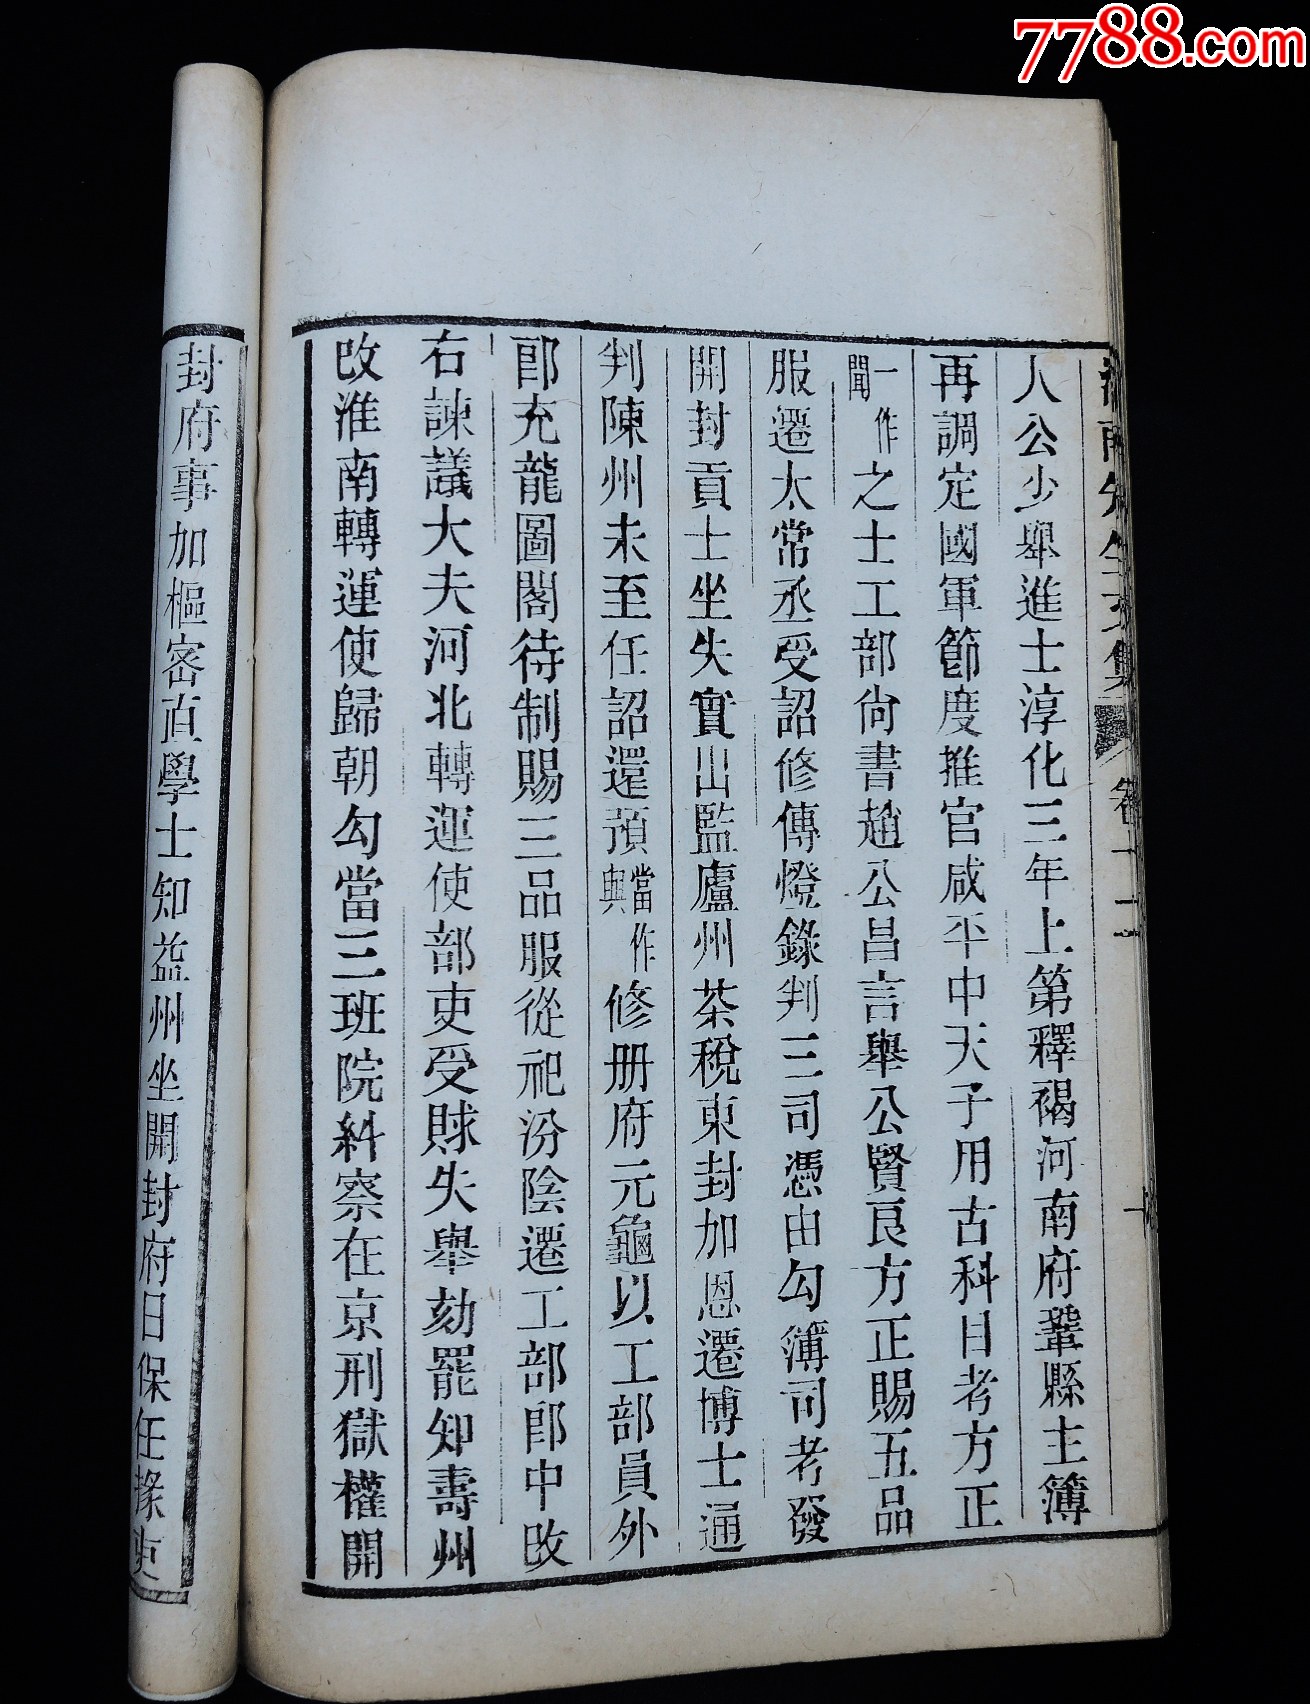 7788.com
人公少舉進士淳化三年上第釋褐河南府鞏縣主簿
再調定國軍節度推官咸平中天子用古科目考方正
一作聞之士工部尙書趙公昌言舉公賢良方正賜五品
服遷太常丞受詔修傳燈錄判三司憑由勾簿司考發
開封貢士坐失實出監廬州茶稅東封加恩遷博士通
判陳州未至任詔還預當作與修册府元龜以工部員外
郎充龍圖閣待制賜三品服從祀汾陰遷工部郎中改
右諫議大夫河北轉運使部吏受賕失舉劾罷知壽州
改淮南轉運使歸朝勾當三班院糾察在京刑獄權開
封府事加樞密直學士知益州坐開封府日保任掾吏